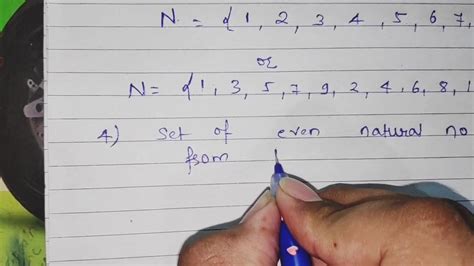 N = { 1 , 2 , 3 , 4 , 5 , 6 , 7 ,
or
N = { 1 , 3 , 5 , 7 , 9 , 2 , 4 , 6 , 8 , 1
4) set of even natural no
from